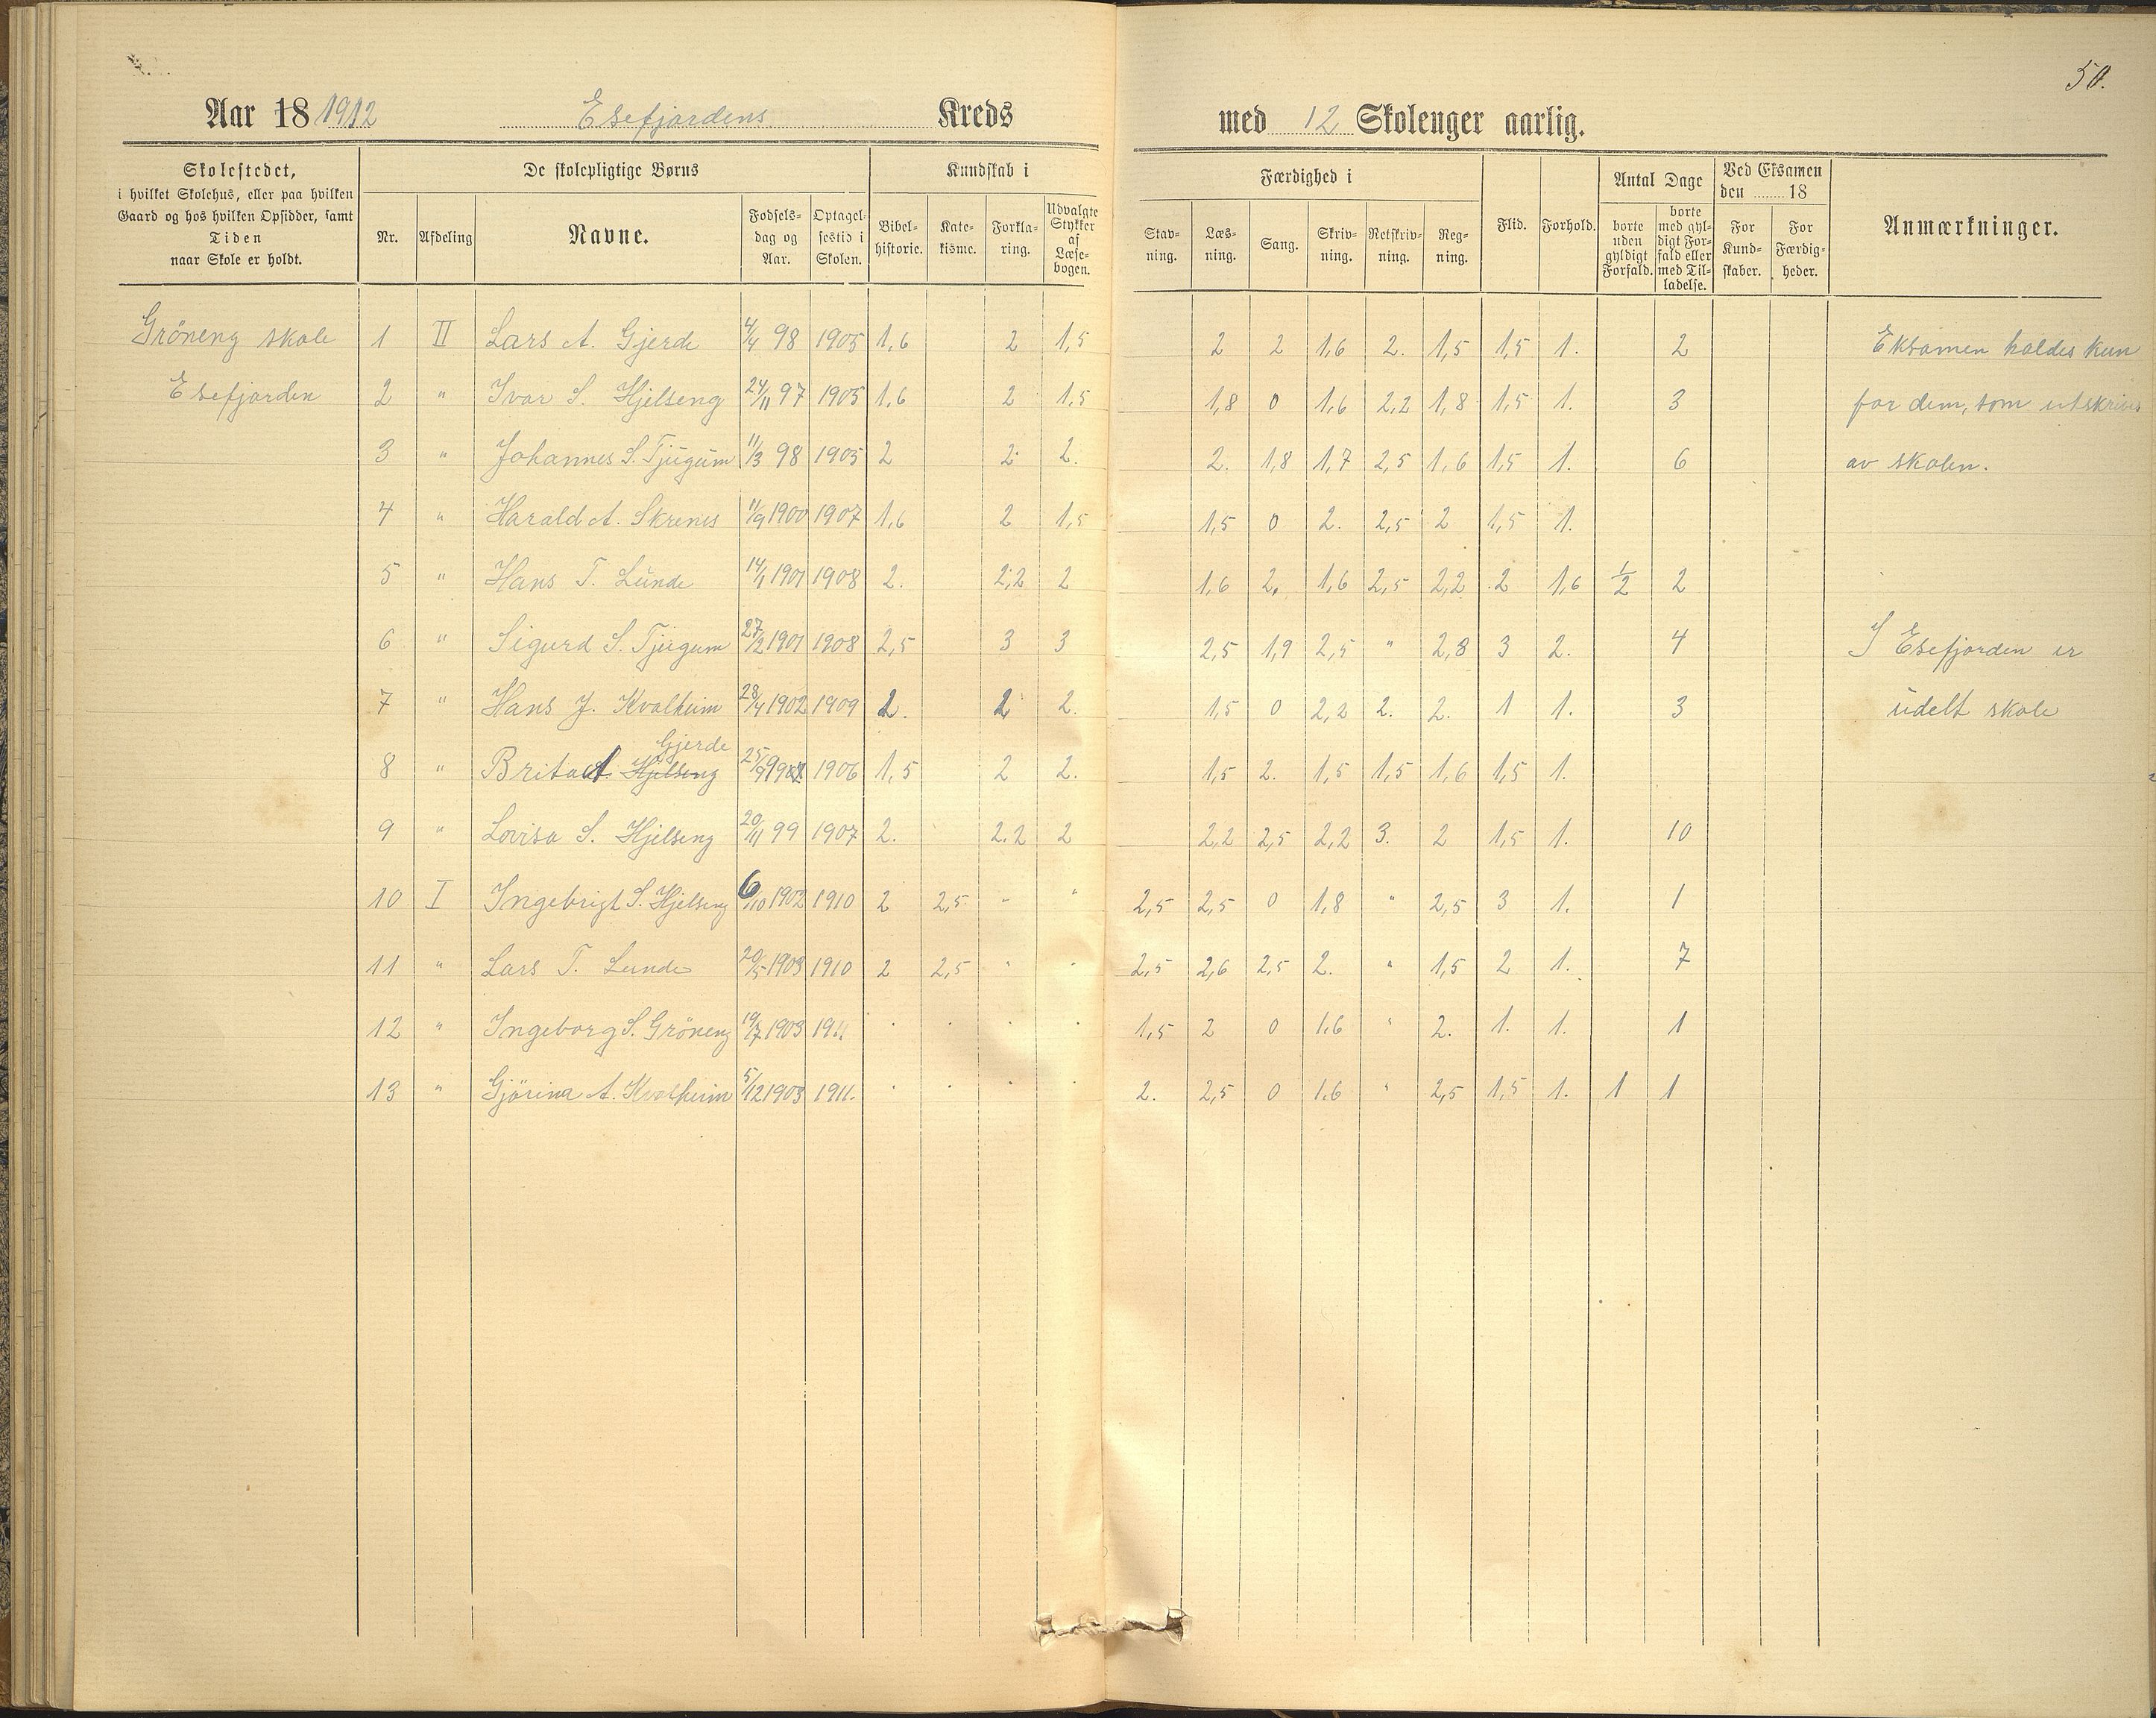 50.
Aar 18 1912 Esefjordens Kreds med 12 Skolenger aarlig.
Skolestedet, i hvilket Skolehus, eller paa hvilken Gaard og hos hvilken Opsidder, samt Tiden naar Skole er holdt.
De skolepligtige Børns
Nr. Afdeling Navne. Fødsels-dag og Aar. Optagel-sestid i Skolen.
Kundskab i
Bibel-historie. Kate-kisme. Forkla-ring. Udvalgte Stykker af Læse-bogen.
Færdighed i
Stav-ning. Læs-ning. Sang. Skriv-ning. Retskriv-ning. Reg-ning.
Flid. Forhold.
Antal Dage
borte uden gyldigt Forfald. borte med gyl-digt For-fald eller med Til-ladelse.
Ved Eksamen den 18
For Kund-skaber. For Færdig-heder.
Anmærkninger.
Gröneng skole 1 II Lars A. Gjerde 4/4 98 1905 1,6 2 1,5 2 2 1,6 2. 1,5 1,5 1. 2 Eksamen holdes kun
Esefjorden 2 " Ivar S. Hjelseng 24/11 97 1905 1,6 2 1,5 1,8 0 1,6 2,2 1,8 1,5 1. 3 for dem, som utskrives
3 " Johannes S. Tjugum 11/3 98 1905 2 2 2. 2. 1,8 1,7 2,5 1,6 1,5 1. 6 av skolen.
4 " Harald A. Skrenes 11/9 1900 1907 1,6 2 1,5 1,5 0 2. 2,5 2 1,5 1.
5 " Hans T. Lunde 14/1 1901 1908 2. 2,2 2 1,6 2. 1,6 2,5 2,2 2 1,6 1/2 2
6 " Sigurd S. Tjugum 27/2 1901 1908 2,5 3 3 2,5 1,9 2,5 " 2,8 3 2. 4 I Esefjorden er
7 " Hans J. Kvalheim 28/4 1902 1909 2. 2 2. 1,5 0 2,2 2. 2. 1 1. 3 udelt skole
8 " Brita A. Hjelseng Gjerde 25/9 1906 1,5 2 2. 1,5 2. 1,5 1,5 1,6 1,5 1.
9 " Lovisa S. Hjelseng 20/11 99 1907 2. 2.2 2 2,2 2,5 2,2 3. 2 1,5 1. 10
10 I Ingebrigt S. Hjelseng 6/10 1902 1910 2 2,5 " " 2,5 2,5 0 1,8 " 2,5 3 1. 1
11 " Lars T. Lunde 20/5 1903 1910 2 2,5 " " 2,5 2,6 2,5 2. " 1,5 2 1. 7
12 " Ingeborg S. Gröneng 19/7 1903 1911. 1,5 2 0 1.6 " 2. 1. 1. 1
13 " Gjörina A. Kvalheim 5/12 1903 1911. 2. 2,5 0 1.6 " 2,5 1,5 1. 1 1